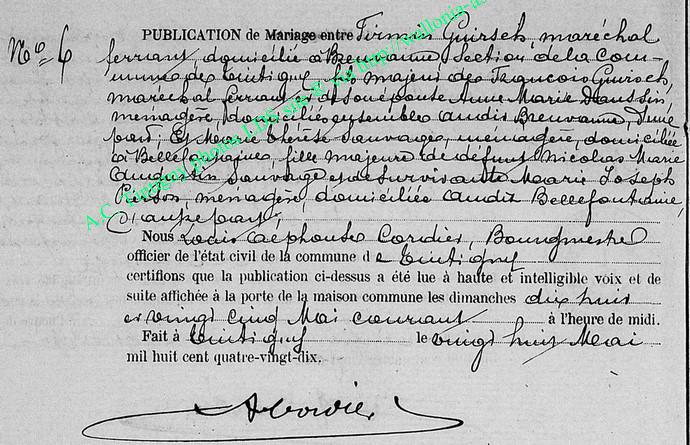 N° 6
PUBLICATION de Mariage entre Firmin Guirsch, maréchal
ferrant, domicilié à Breuvanne Section de la Com-
mune de Tintigny, fils majeur de François Guirsch,
maréchal ferrant et de son épouse Anne Marie Daussin,
ménagère, domiciliés ensemble audit Breuvanne, d'une
part; Et Marie Thérèse Sauvage, ménagère, domiciliée
à Bellefontaine, fille majeure de défunt Nicolas Marie
Augustin Sauvage et de survivante Marie Joseph
Pierson, ménagère, domiciliée audit Bellefontaine,
d'autre part;
Nous Louis Alphonse Cordier, Bourgmestre
officier de l'état civil de la commune de Tintigny
certifions que la publication ci-dessus a été lue à haute et intelligible voix et de
suite affichée à la porte de la maison commune les dimanches dix huit
et vingt cinq Mai courant à l'heure de midi.
Fait à Tintigny le vingt huit Mai
mil huit cent quatre-vingt-dix.
ACordier